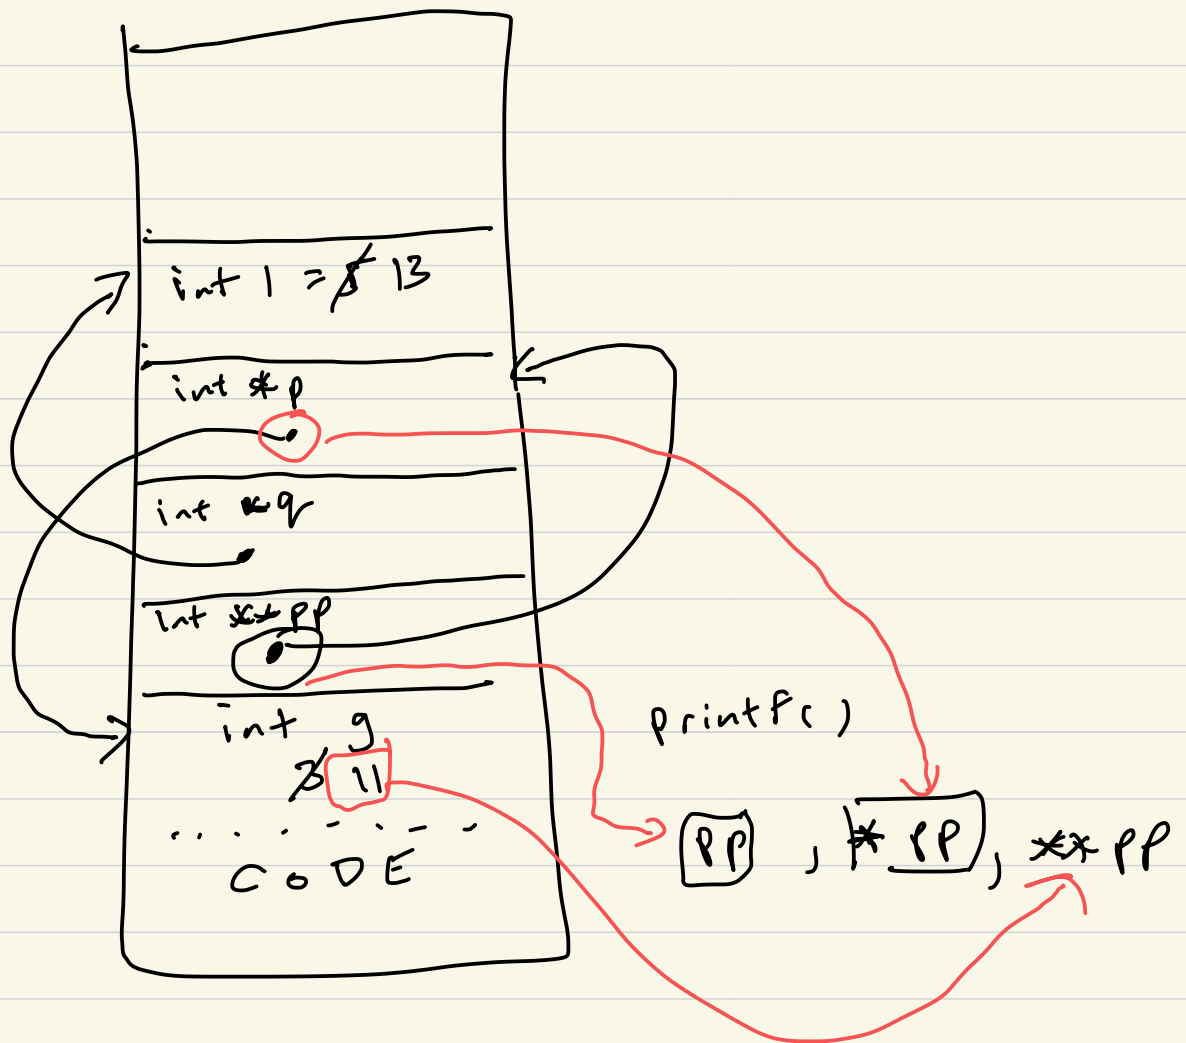 int 1 = 5 13
int *p
int *q
int **pp
int g
3 11
CODE
printf()
pp, *pp, **pp